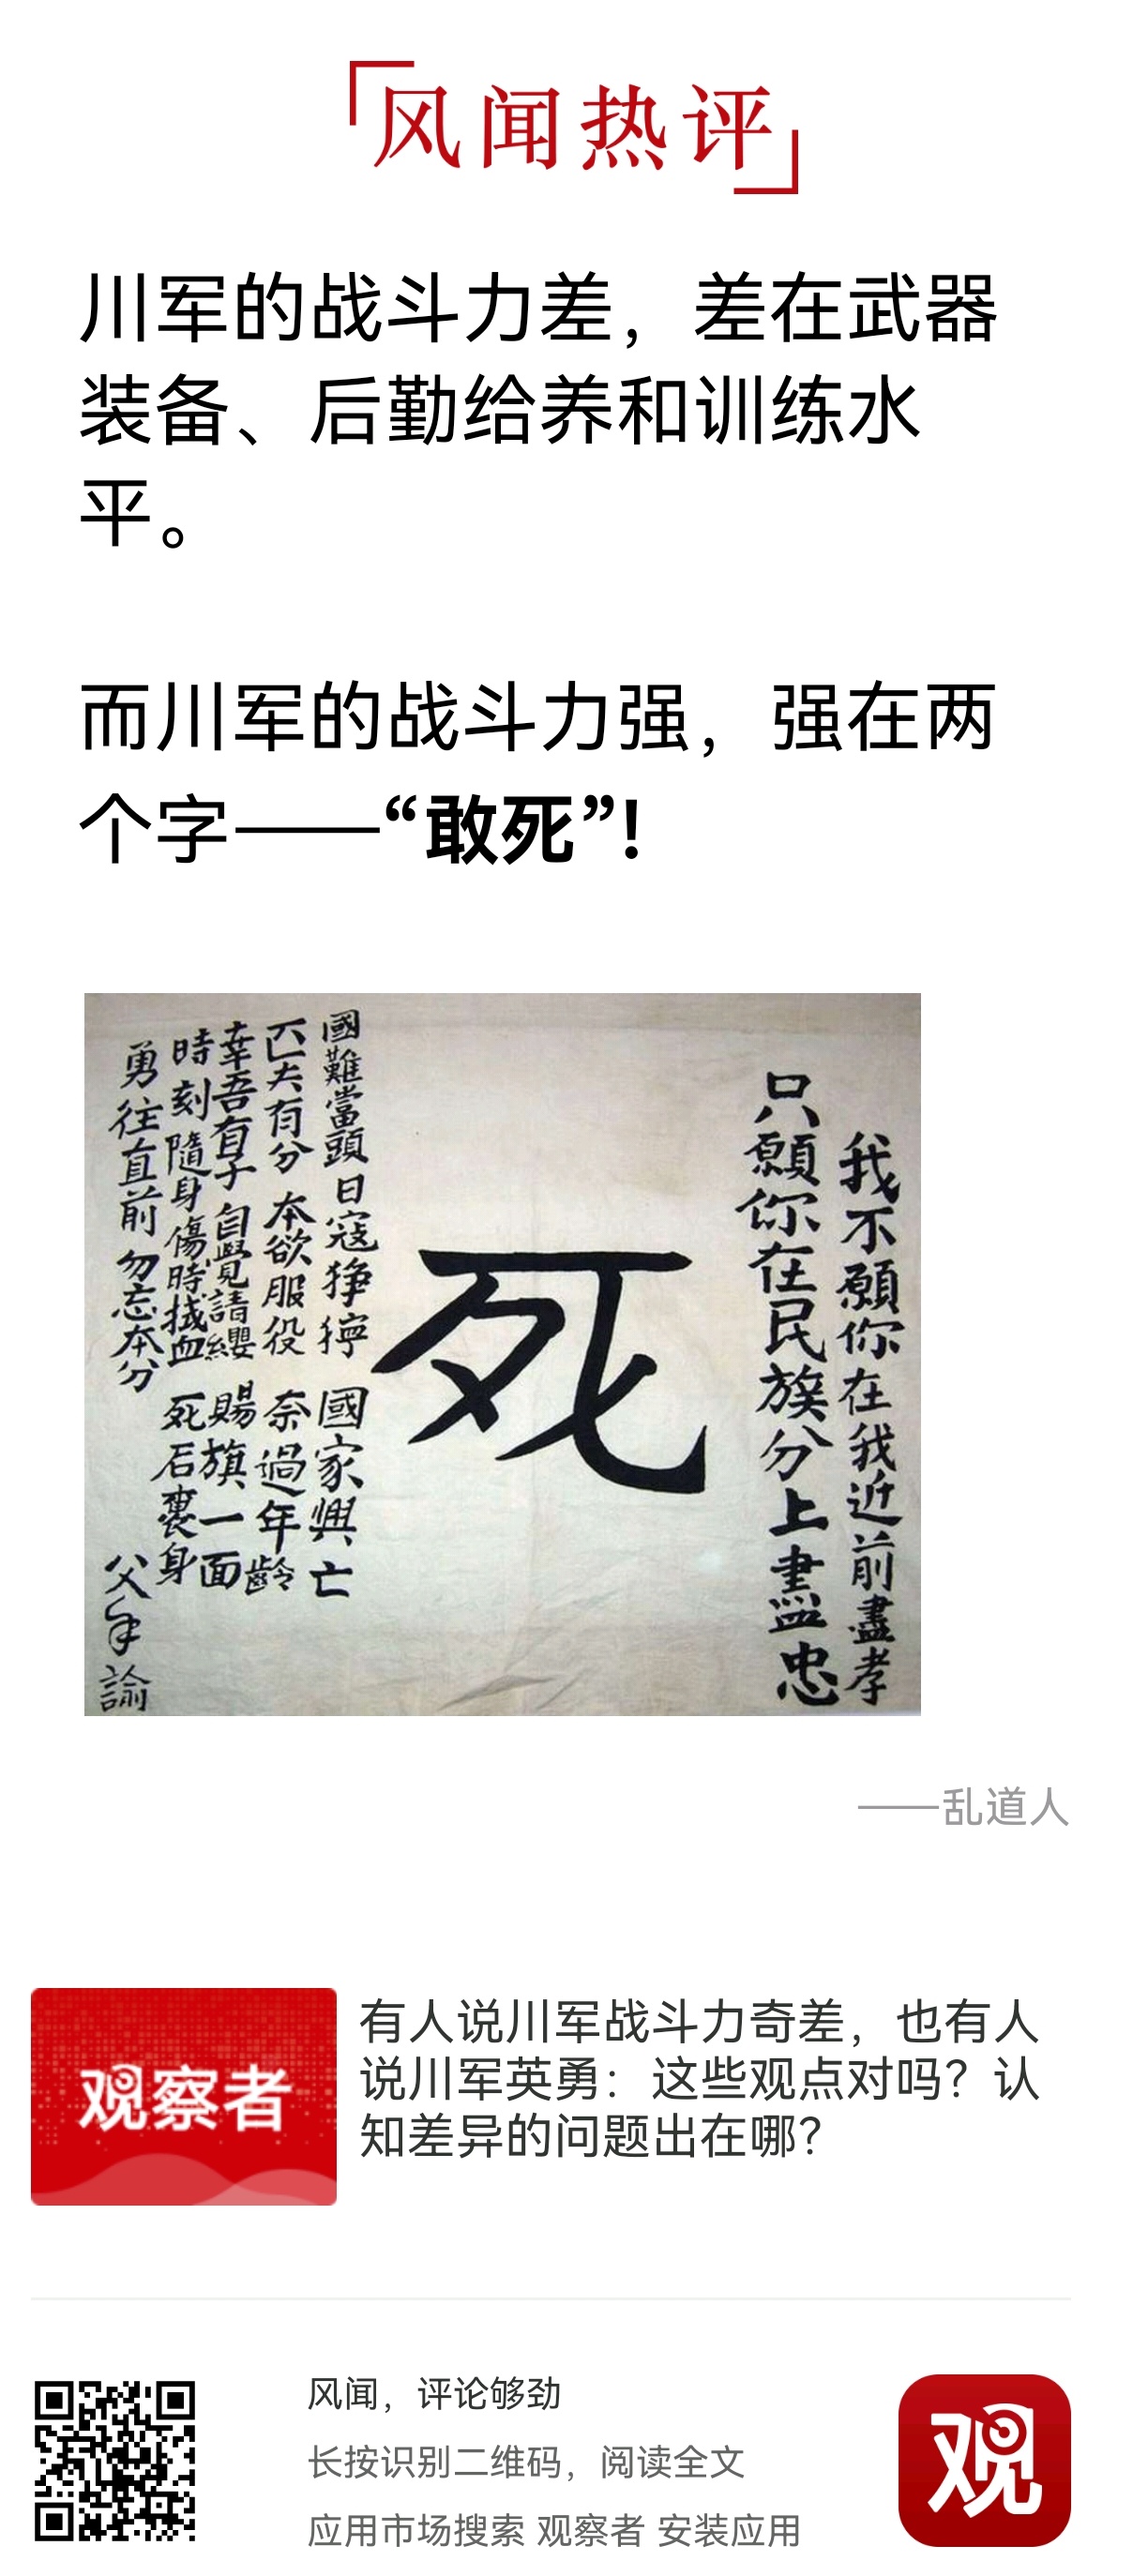 风闻热评
川军的战斗力差，差在武器
装备、后勤给养和训练水
平。
而川军的战斗力强，强在两
个字——“敢死”！
我不願你在我近前盡孝
只願你在民族分上盡忠
死
國難當頭 日寇猙獰 國家興亡
匹夫有分 本欲服役 奈過年齡
幸吾有子 自覺請纓 賜旗一面
時刻隨身 傷時拭血 死后裹身
勇往直前 勿忘本分
父手諭
——乱道人
观察者
有人说川军战斗力奇差，也有人
说川军英勇：这些观点对吗？认
知差异的问题出在哪？
风闻，评论够劲
长按识别二维码，阅读全文
应用市场搜索 观察者 安装应用
观